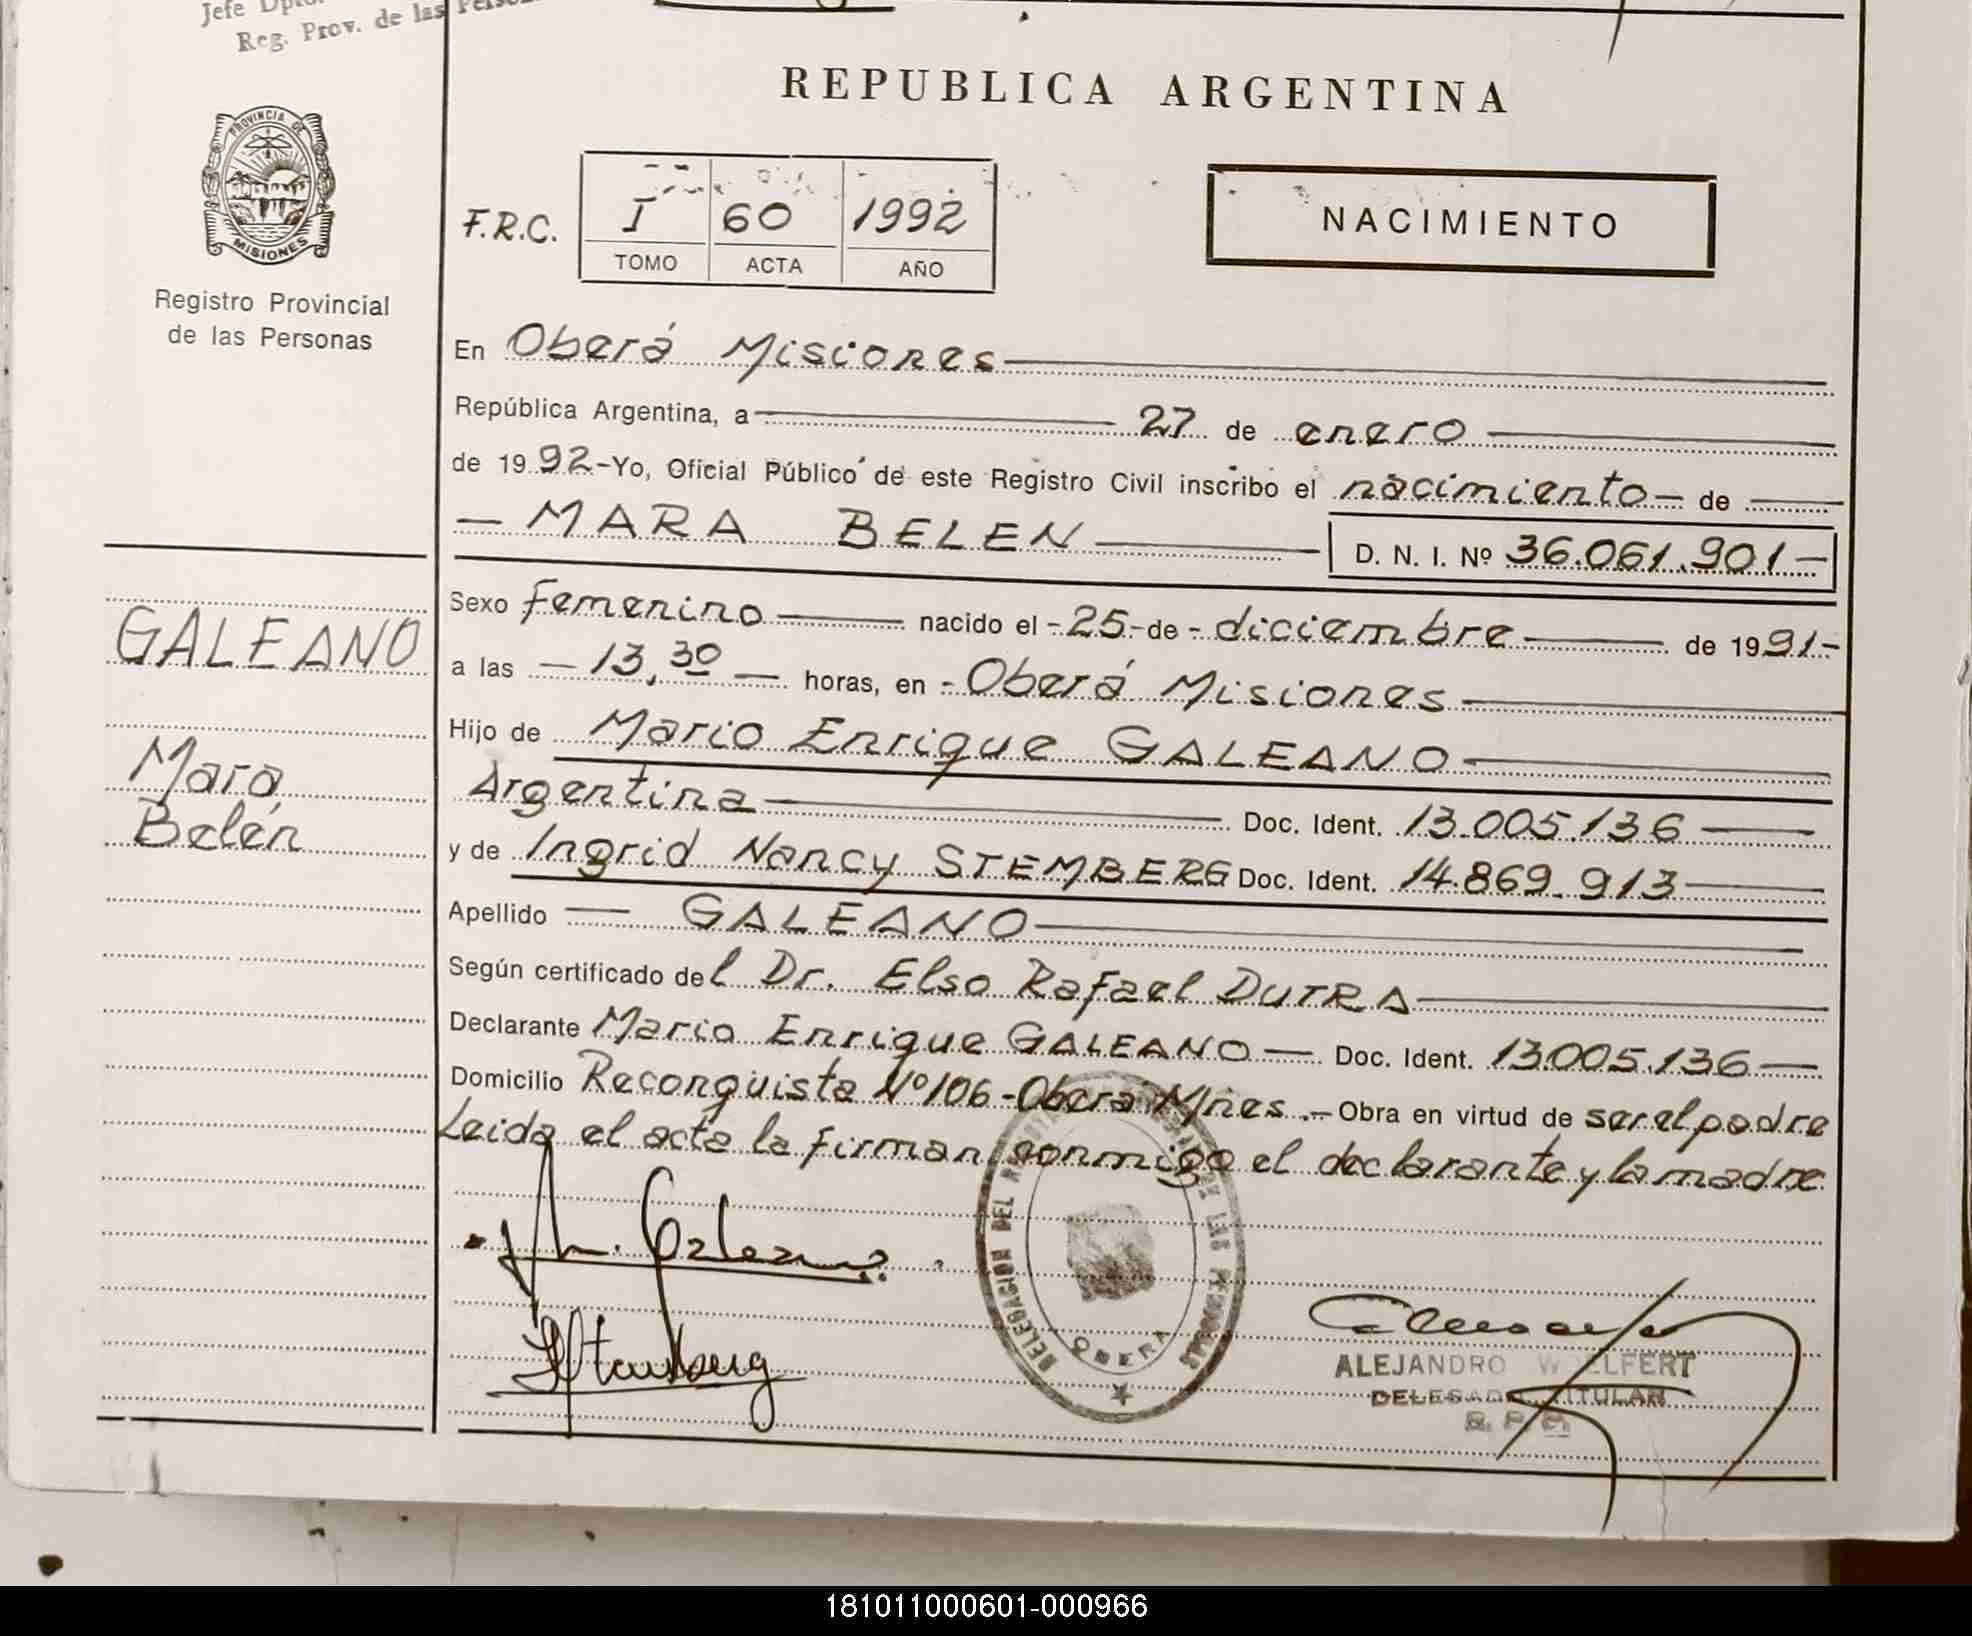 Jefe Dpto.
Reg. Prov. de las
REPUBLICA ARGENTINA
PROVINCIA DE
MISIONES
Registro Provincial
de las Personas
F.R.C.
I 60 1992
TOMO ACTA AÑO
NACIMIENTO
En Oberá Misiones
República Argentina, a 27 de enero
de 1992-Yo, Oficial Público de este Registro Civil inscribo el nacimiento de
MARA BELEN D. N. I. Nº 36.061.901-
Sexo femenino nacido el -25- de - diciembre de 1991-
a las - 13,30 - horas, en - Oberá Misiones
Hijo de Mario Enrique GALEANO
Argentina Doc. Ident. 13.005.136
y de Ingrid Nancy STEMBERG Doc. Ident. 14.869.913
Apellido GALEANO
Según certificado del Dr. Elso Rafael DUTRA
Declarante Mario Enrique GALEANO Doc. Ident. 13.005.136
Domicilio Reconquista Nº 106 - Oberá Mnes. - Obra en virtud de ser el padre
Leida el acta la firman conmigo el declarante y la madre
GALEANO
Mara
Belén
M. Galeano
DELEGACION DEL LAS PERSONAS
OBERA
ALEJANDRO WOELFERT
DELEGADO TITULAR
181011000601-000966